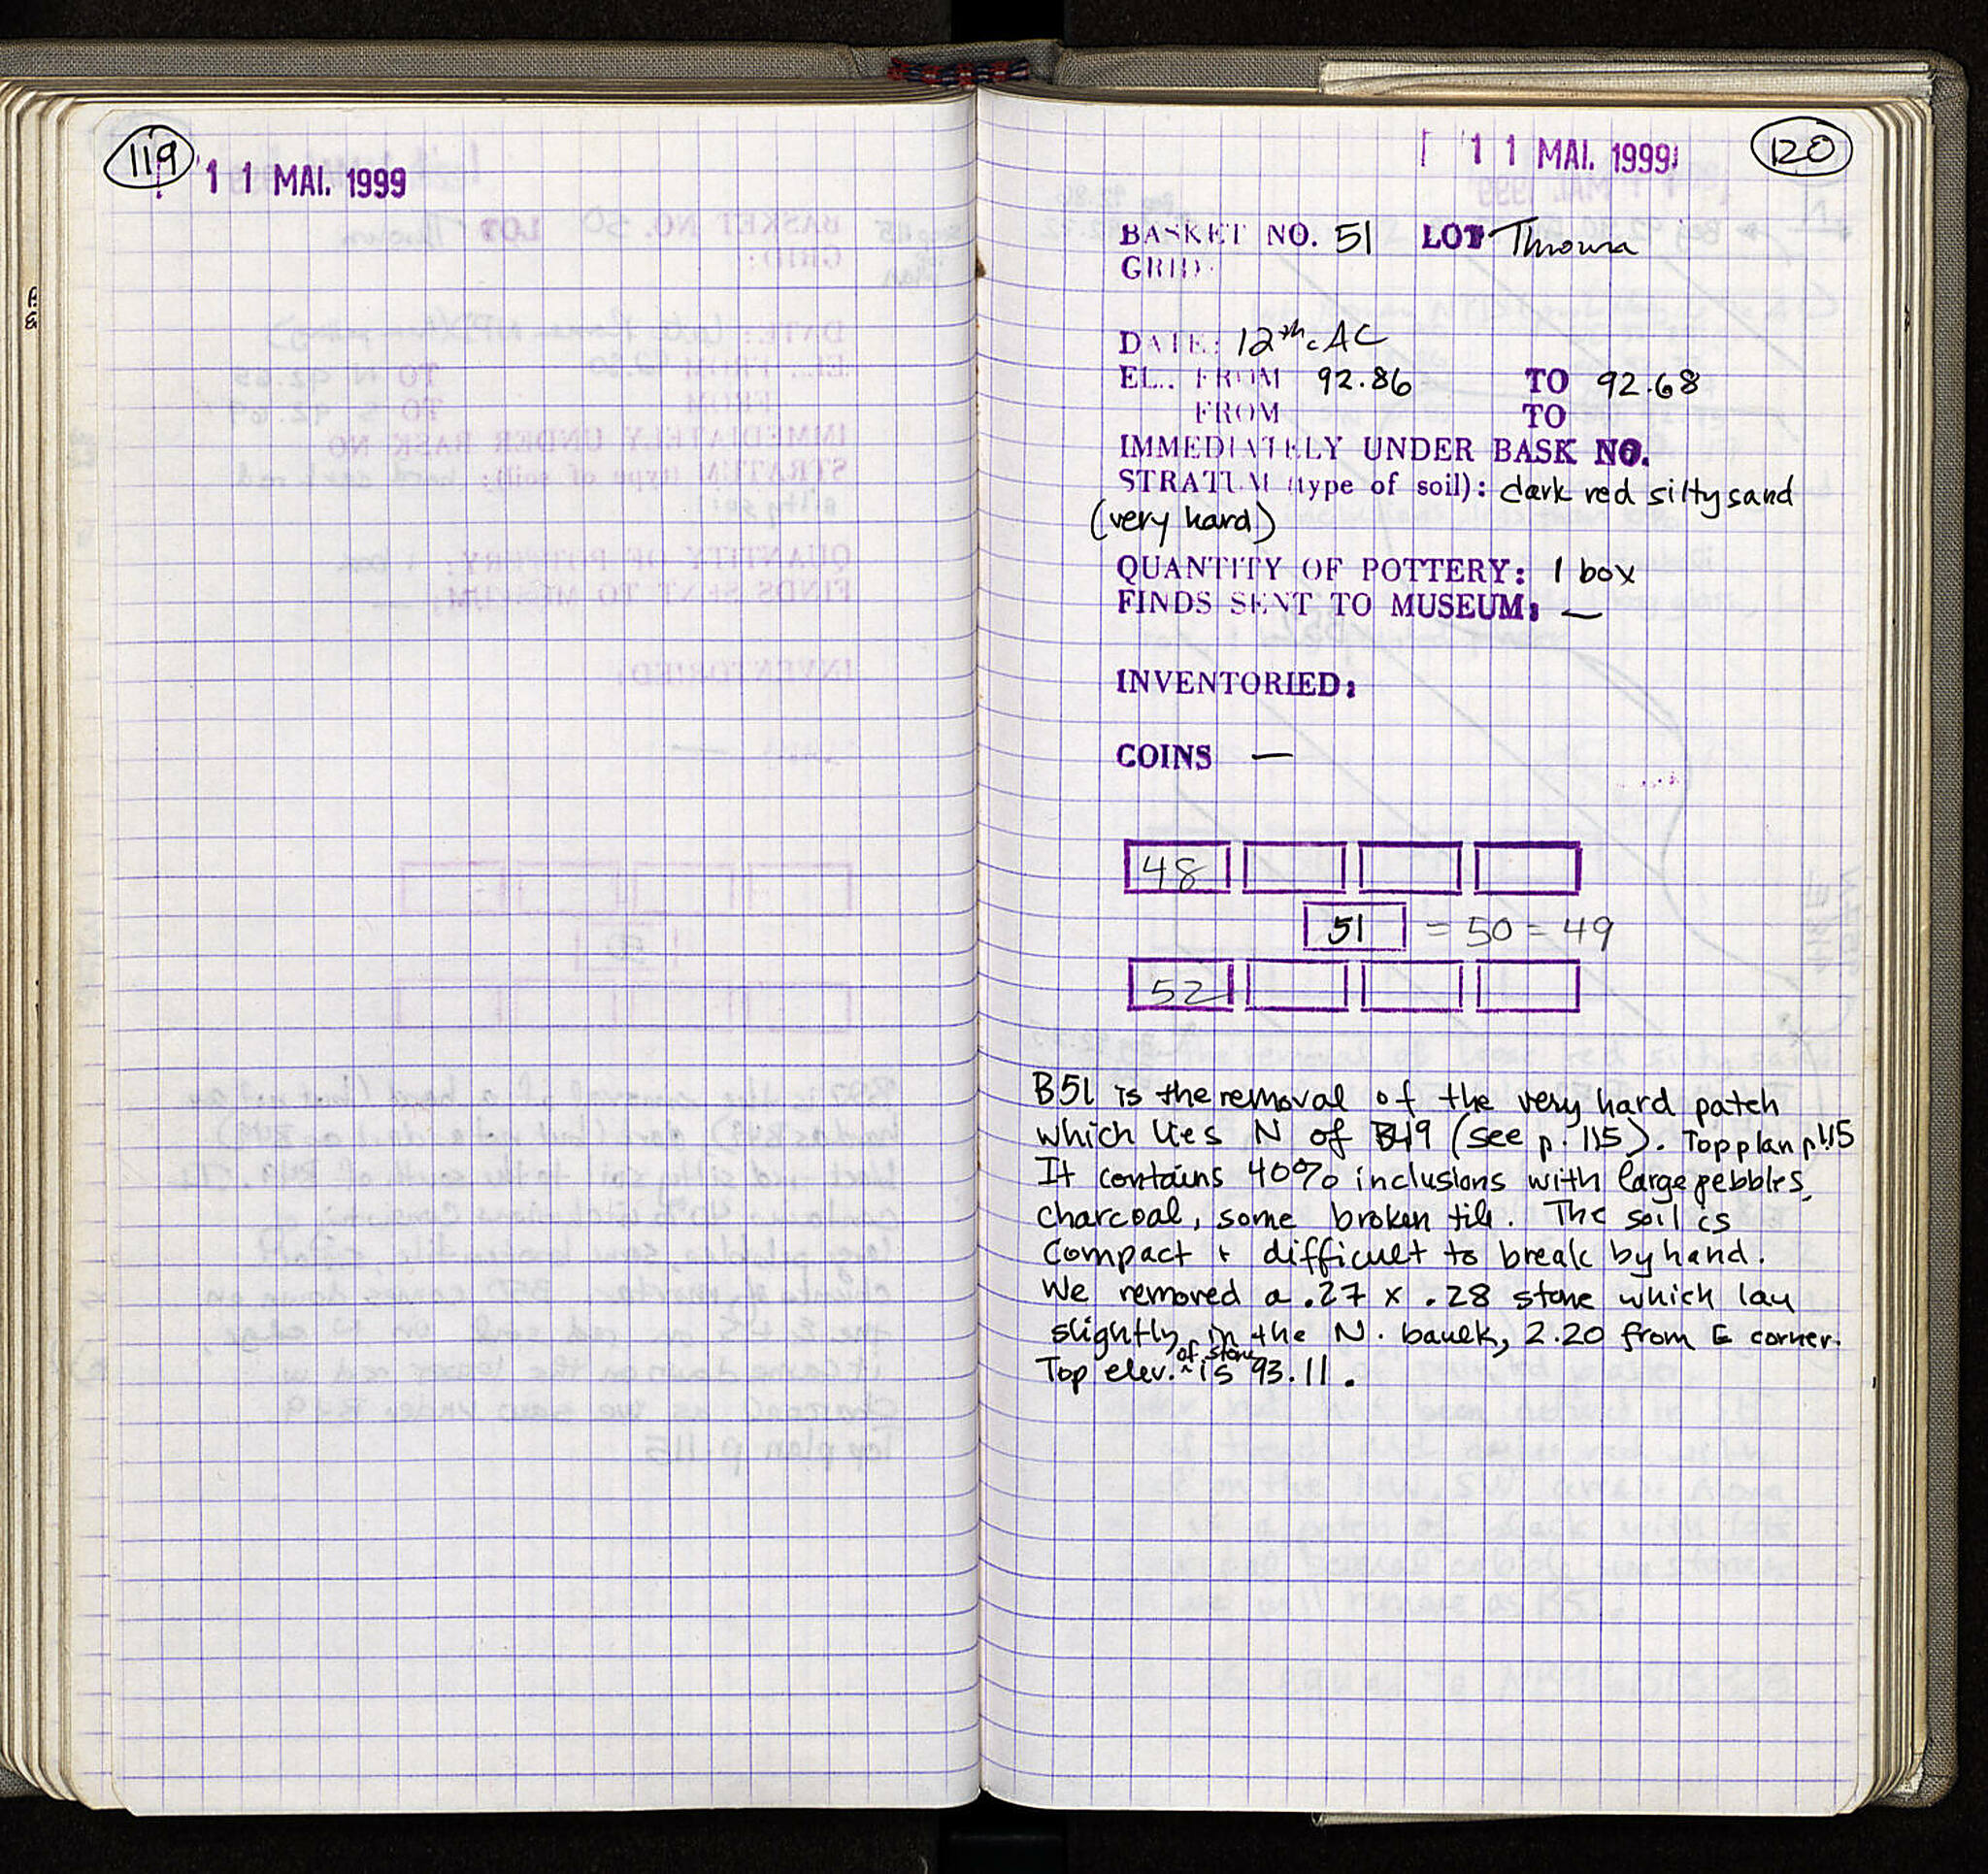 119
11 MAI. 1999
11 MAI. 1999
120
BASKET NO. 51 LOT Thrown
GRID:
DATE: 12th c AC
EL.. FROM 92.86 TO 92.68
FROM TO
IMMEDIATELY UNDER BASK NO.
STRATUM (type of soil): dark red silty sand
(very hard)
QUANTITY OF POTTERY: 1 box
FINDS SENT TO MUSEUM: —
INVENTORIED:
COINS —
48
51 = 50 = 49
52
B51 is the removal of the very hard patch
which lies N of B49 (see p. 115). Top plan p115
It contains 40% inclusions with large pebbles,
charcoal, some broken tile. The soil is
compact + difficult to break by hand.
We removed a .27 x .28 stone which lay
slightly in the N. baulk, 2.20 from E corner.
Top elev. of stone is 93.11.